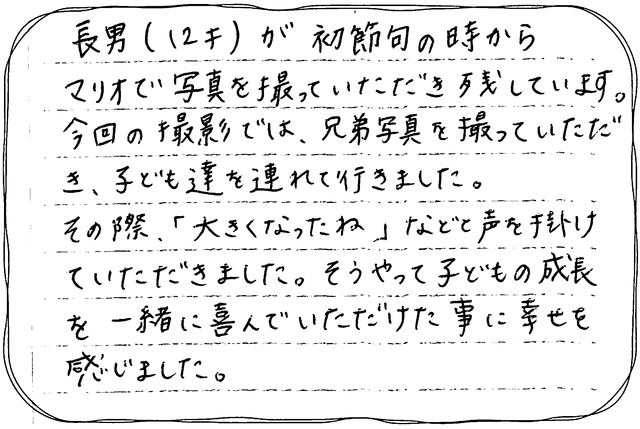 長男(12才)が初節句の時から
マリオで写真を撮っていただき残しています。
今回の撮影では、兄弟写真を撮っていただ
き、子ども達を連れて行きました。
その際、「大きくなったね」などと声を掛け
ていただきました。そうやって子どもの成長
を一緒に喜んでいただけた事に幸せを
感じました。